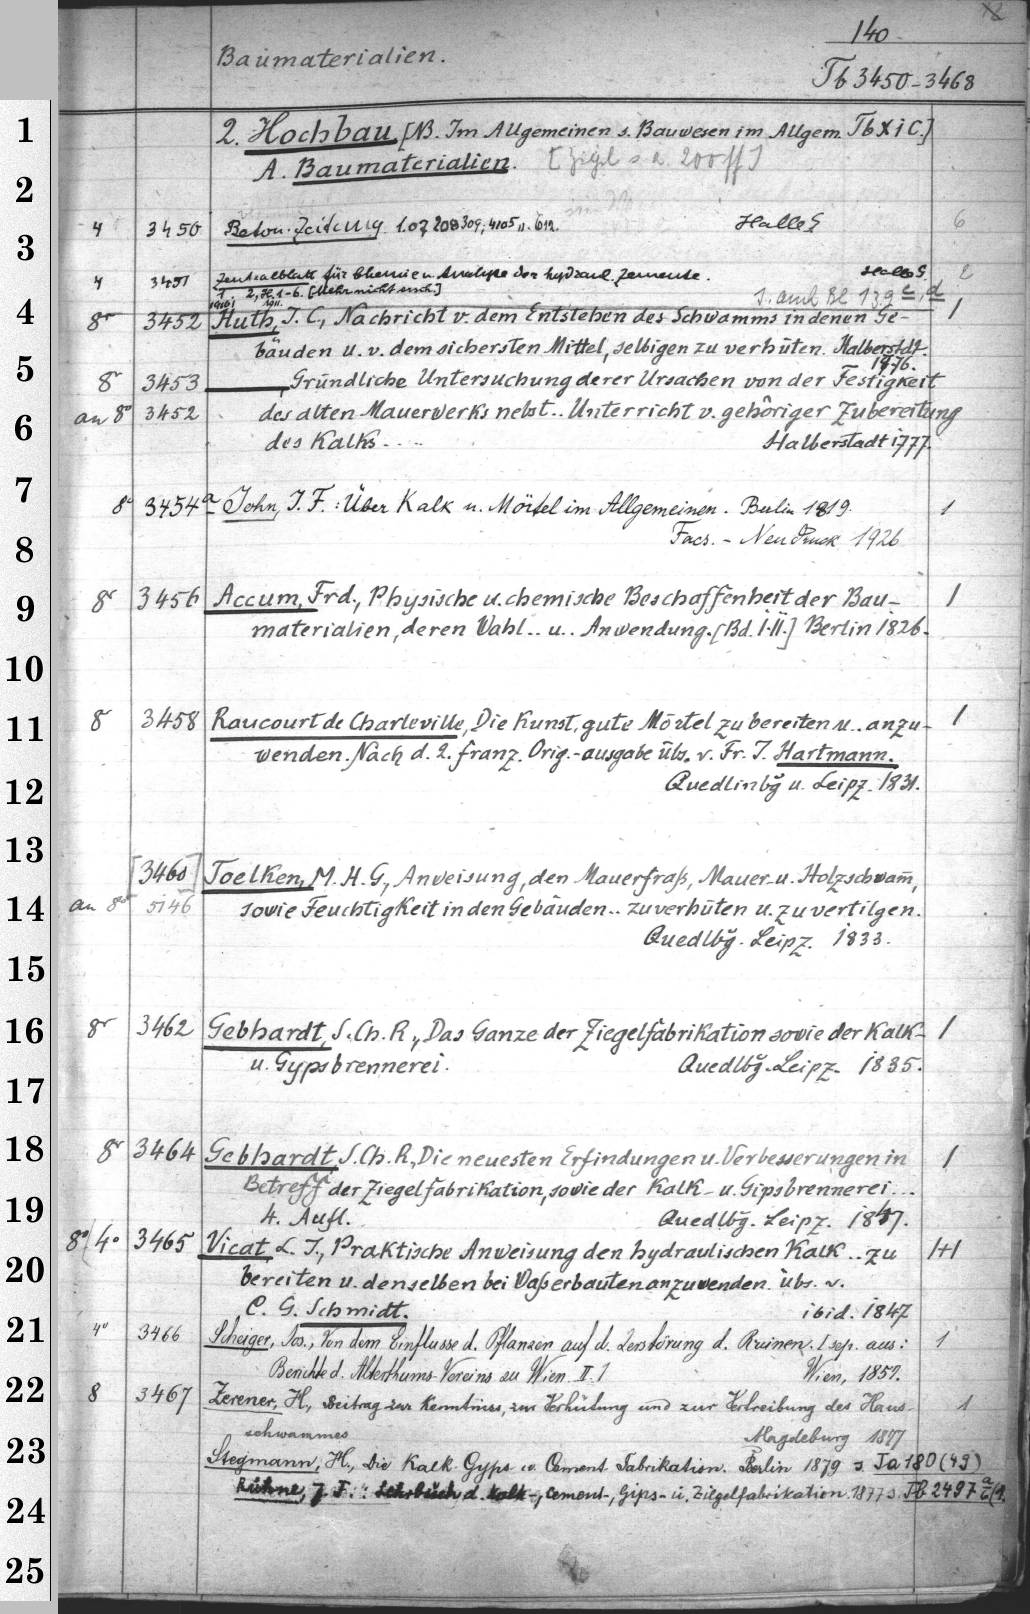 140
Baumaterialien.
Tb 3450-3468
1
2. Hochbau [NB. Im Allgemeinen s. Bauwesen im Allgem. Tb X i C.]
A. Baumaterialien.
2
4 3450 Beton-Zeitung Halle S 6
3
4 3451 Zentralblatt für Chemie u. Analyse der hydraul. Zemente. Halle S 2
1910 2, H. 1-6. [Mehr nicht ersch.] 1911.
4
8° 3452 Huth, J. C., Nachricht v. dem Entstehen des Schwamms in denen Ge- 1
bäuden u. v. dem sichersten Mittel, selbigen zu verhüten. Halberstdt.
1776.
5
8° 3453 ——— Gründliche Untersuchung derer Ursachen von der Festigkeit
an 8° 3452 des alten Mauerwerks nebst.. Unterricht v. gehöriger Zubereitung
6
des Kalks.... Halberstadt 1777.
7
8° 3454a John, J. F.: Über Kalk u. Mörtel im Allgemeinen. Berlin 1819. 1
Facs. - Neudruck 1926
8
9
8° 3456 Accum, Frd., Physische u. chemische Beschaffenheit der Bau- 1
materialien, deren Wahl.. u.. Anwendung. [Bd. I-II.] Berlin 1826.
10
8° 3458 Raucourt de Charleville, Die Kunst, gute Mörtel zu bereiten u.. anzu- 1
11
wenden. Nach d. 2. franz. Orig.-ausgabe übs. v. Fr. J. Hartmann.
Quedlinbg u. Leipz. 1831.
12
13
[3460] Toelken, M. H. G., Anweisung, den Mauerfraß, Mauer- u. Holzschwam̄,
14
an 8° 5146 sowie Feuchtigkeit in den Gebäuden.. zu verhüten u. zu vertilgen.
Quedlbg. Leipz. 1833.
15
16
8° 3462 Gebhardt, S. Ch. R., Das Ganze der Ziegelfabrikation sowie der Kalk- 1
u. Gypsbrennerei. Quedlbg. Leipz. 1835.
17
18
8° 3464 Gebhardt, S. Ch. R., Die neuesten Erfindungen u. Verbesserungen in 1
Betreff der Ziegelfabrikation, sowie der Kalk- u. Gipsbrennerei...
19
4. Aufl. Quedlbg. Leipz. 1847.
8° 4° 3465 Vicat L. J., Praktische Anweisung den hydraulischen Kalk.. zu 1+1
20
bereiten u. denselben bei Waßerbauten anzuwenden. übs. v.
C. G. Schmidt. ibid. 1847
21
4° 3466 Scheiger, Jos., Von dem Einflusse d. Pflanzen auf d. Zerstörung d. Ruinen. [sep. aus: 1
Berichte d. Alterthums-Vereins zu Wien. II.] Wien, 1857.
22
8 3467 Zerener, H., Beitrag zur Kenntniss, zur Verhütung und zur Vertreibung des Haus- 1
schwammes Magdeburg 1877
23
Stegmann, H., Die Kalk- Gyps u. Cement Fabrikation. Berlin 1879 s. Ta 180 (49)
Rühne, J. F.: Lehrbuch d. Kalk-, Cement-, Gips- u. Ziegelfabrikation. 1877 s. Tb 2497
24
25